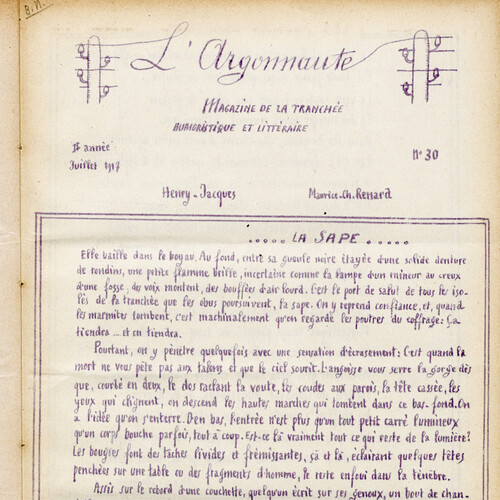 B.N.
L'Argonnaute
MAGAZINE DE LA TRANCHÉE
HUMORISTIQUE ET LITTÉRAIRE
IIe année
Juillet 1917
N° 30
Henry-Jacques
Maurice-Ch. Renard
..... LA SAPE .....
Elle baille dans le boyau. Au fond, entre sa gueule noire étayée d'une solide denture
de rondins, une petite flamme brille, incertaine comme la lampe d'un mineur au creux
d'une fosse; des voix montent, des bouffées d'air lourd. C'est le port de salut de tous les iso-
lés de la tranchée que les obus poursuivent, la sape. On y reprend confiance, et, quand
les marmites tombent, c'est machinalement qu'on regarde les poutres du coffrage: Ça
tiendra ... et on tiendra.
Pourtant, on y pénètre quelquefois avec une sensation d'écrasement: C'est quand la
mort ne vous pète pas aux talons et que le ciel sourit. L'angoisse vous serre la gorge dès
que, courbé en deux, le dos raclant la voute, les coudes aux parois, la tête cassée, les
yeux qui clignent, on descend les hautes marches qui tombent dans ce bas-fond. On
a l'idée qu'on s'enterre. D'en bas, l'entrée n'est plus qu'un tout petit carré lumineux
qu'un corps bouche parfois, tout à coup. Est-ce là vraiment tout ce qui reste de la lumière?
Les bougies font des tâches livides et frémissantes, çà et là, éclairant quelques têtes
penchées sur une table ou des fragments d'homme, le reste enfoui dans la ténèbre.
Assis sur le rebord d'une couchette, quelqu'un écrit sur ses genoux, un bout de chan-